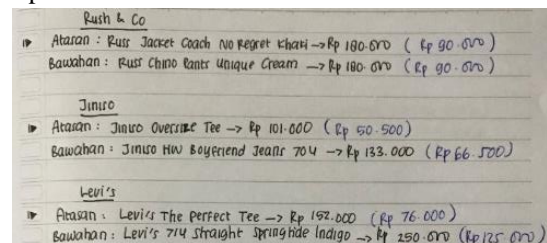 Rush & Co
Atasan : Russ Jacket Coach No Regret Khaki → Rp 180.000 ( Rp 90.000)
Bawahan : Russ Chino Pants Unique Cream → Rp 180.000 ( Rp 90.000)
Jiniso
Atasan : Jiniso Oversize Tee → Rp 101.000 ( Rp 50.500)
Bawahan : Jiniso HW Boyfriend Jeans 704 → Rp 133.000 ( Rp 66.500)
Levi's
Atasan : Levi's The Perfect Tee → Rp 152.000 (Rp 76.000)
Bawahan : Levi's 714 Straight Springtide Indigo → Rp 250.000 (Rp 125.000)